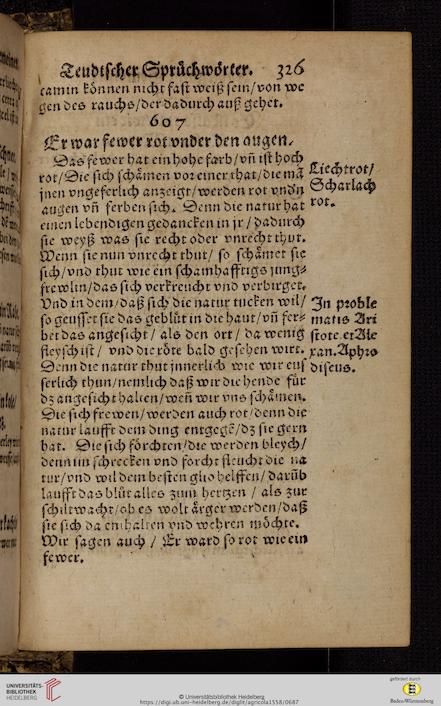 Teudtscher Sprüchwörter. 326
camin können nicht fast weiß sein/von we
gen des rauchs/der dadurch auß gehet.
607
Er war fewer rot vnder den augen.
Das fewer hat ein hohe farb/vñ ist hoch
rot/Die sich schämen vor einer that/die mā
jnen vngeferlich anzeigt/werden rot vndn
augen vñ ferben sich. Denn die natur hat
einen lebendigen gedancken in jr/dadurch
sie weyß was sie recht oder vnrecht thut.
Wenn sie nun vnrecht thut/ so schämet sie
sich/vnd thut wie ein schamhafftigs jung-
frewlin/das sich verkreucht vnd verbirget.
Vnd in dem/daß sich die natur tucken wil/
so geusset sie das geblüt in die haut/vñ fer-
bet das angesicht/ als den ort/ da wenig
fleysch ist/ vnd die röte bald gesehen wirt.
Denn die natur thut jnnerlich wie wir eus
serlich thun/nemlich daß wir die hende für
dz angesicht halten/weñ wir vns schämen.
Die sich frewen/werden auch rot/denn die
natur laufft dem ding entgegē/dz sie gern
hat. Die sich förchten/die werden bleych/
denn im schrecken vnd forcht fleucht die na
tur/vnd wil dem besten glid helffen/darūb
laufft das blüt alles zum hertzen / als zur
schiltwacht/ob es wolt ärger werden/daß
sie sich da enthalten vnd wehren möchte.
Wir sagen auch / Er ward so rot wie ein
fewer.
Liechtrot/
Scharlach
rot.
In proble
matis Ari
stote. et Ale
xan. Aphro
diseus.
UNIVERSITÄTS-
BIBLIOTHEK
HEIDELBERG
© Universitätsbibliothek Heidelberg
https://digi.ub.uni-heidelberg.de/diglit/agricola1558/0687
gefördert durch
Baden-Württemberg